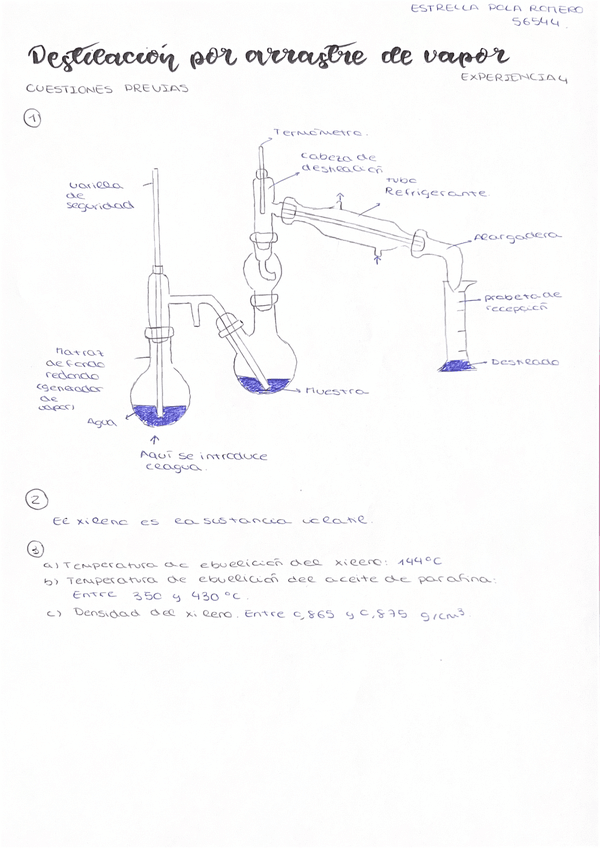 ESTRELLA POLA ROMERO
56544
Destilación por arrastre de vapor
EXPERIENCIA 4
CUESTIONES PREVIAS
1
Termómetro.
cabeza de
destilación
tubo
Refrigerante
varilla
de
seguridad
Alargadera
probeta de
recepción
Destilado
Matraz
de fondo
redondo
(generador
de
vapor)
Muestra
Agua
Aquí se introduce
el agua.
2
El xileno es la sustancia volátil.
3
a) Temperatura de ebullición del xileno: 144°C
b) Temperatura de ebullición del aceite de parafina:
Entre 350 y 430 °C.
c) Densidad del xileno. Entre 0,865 y 0,875 g/cm³